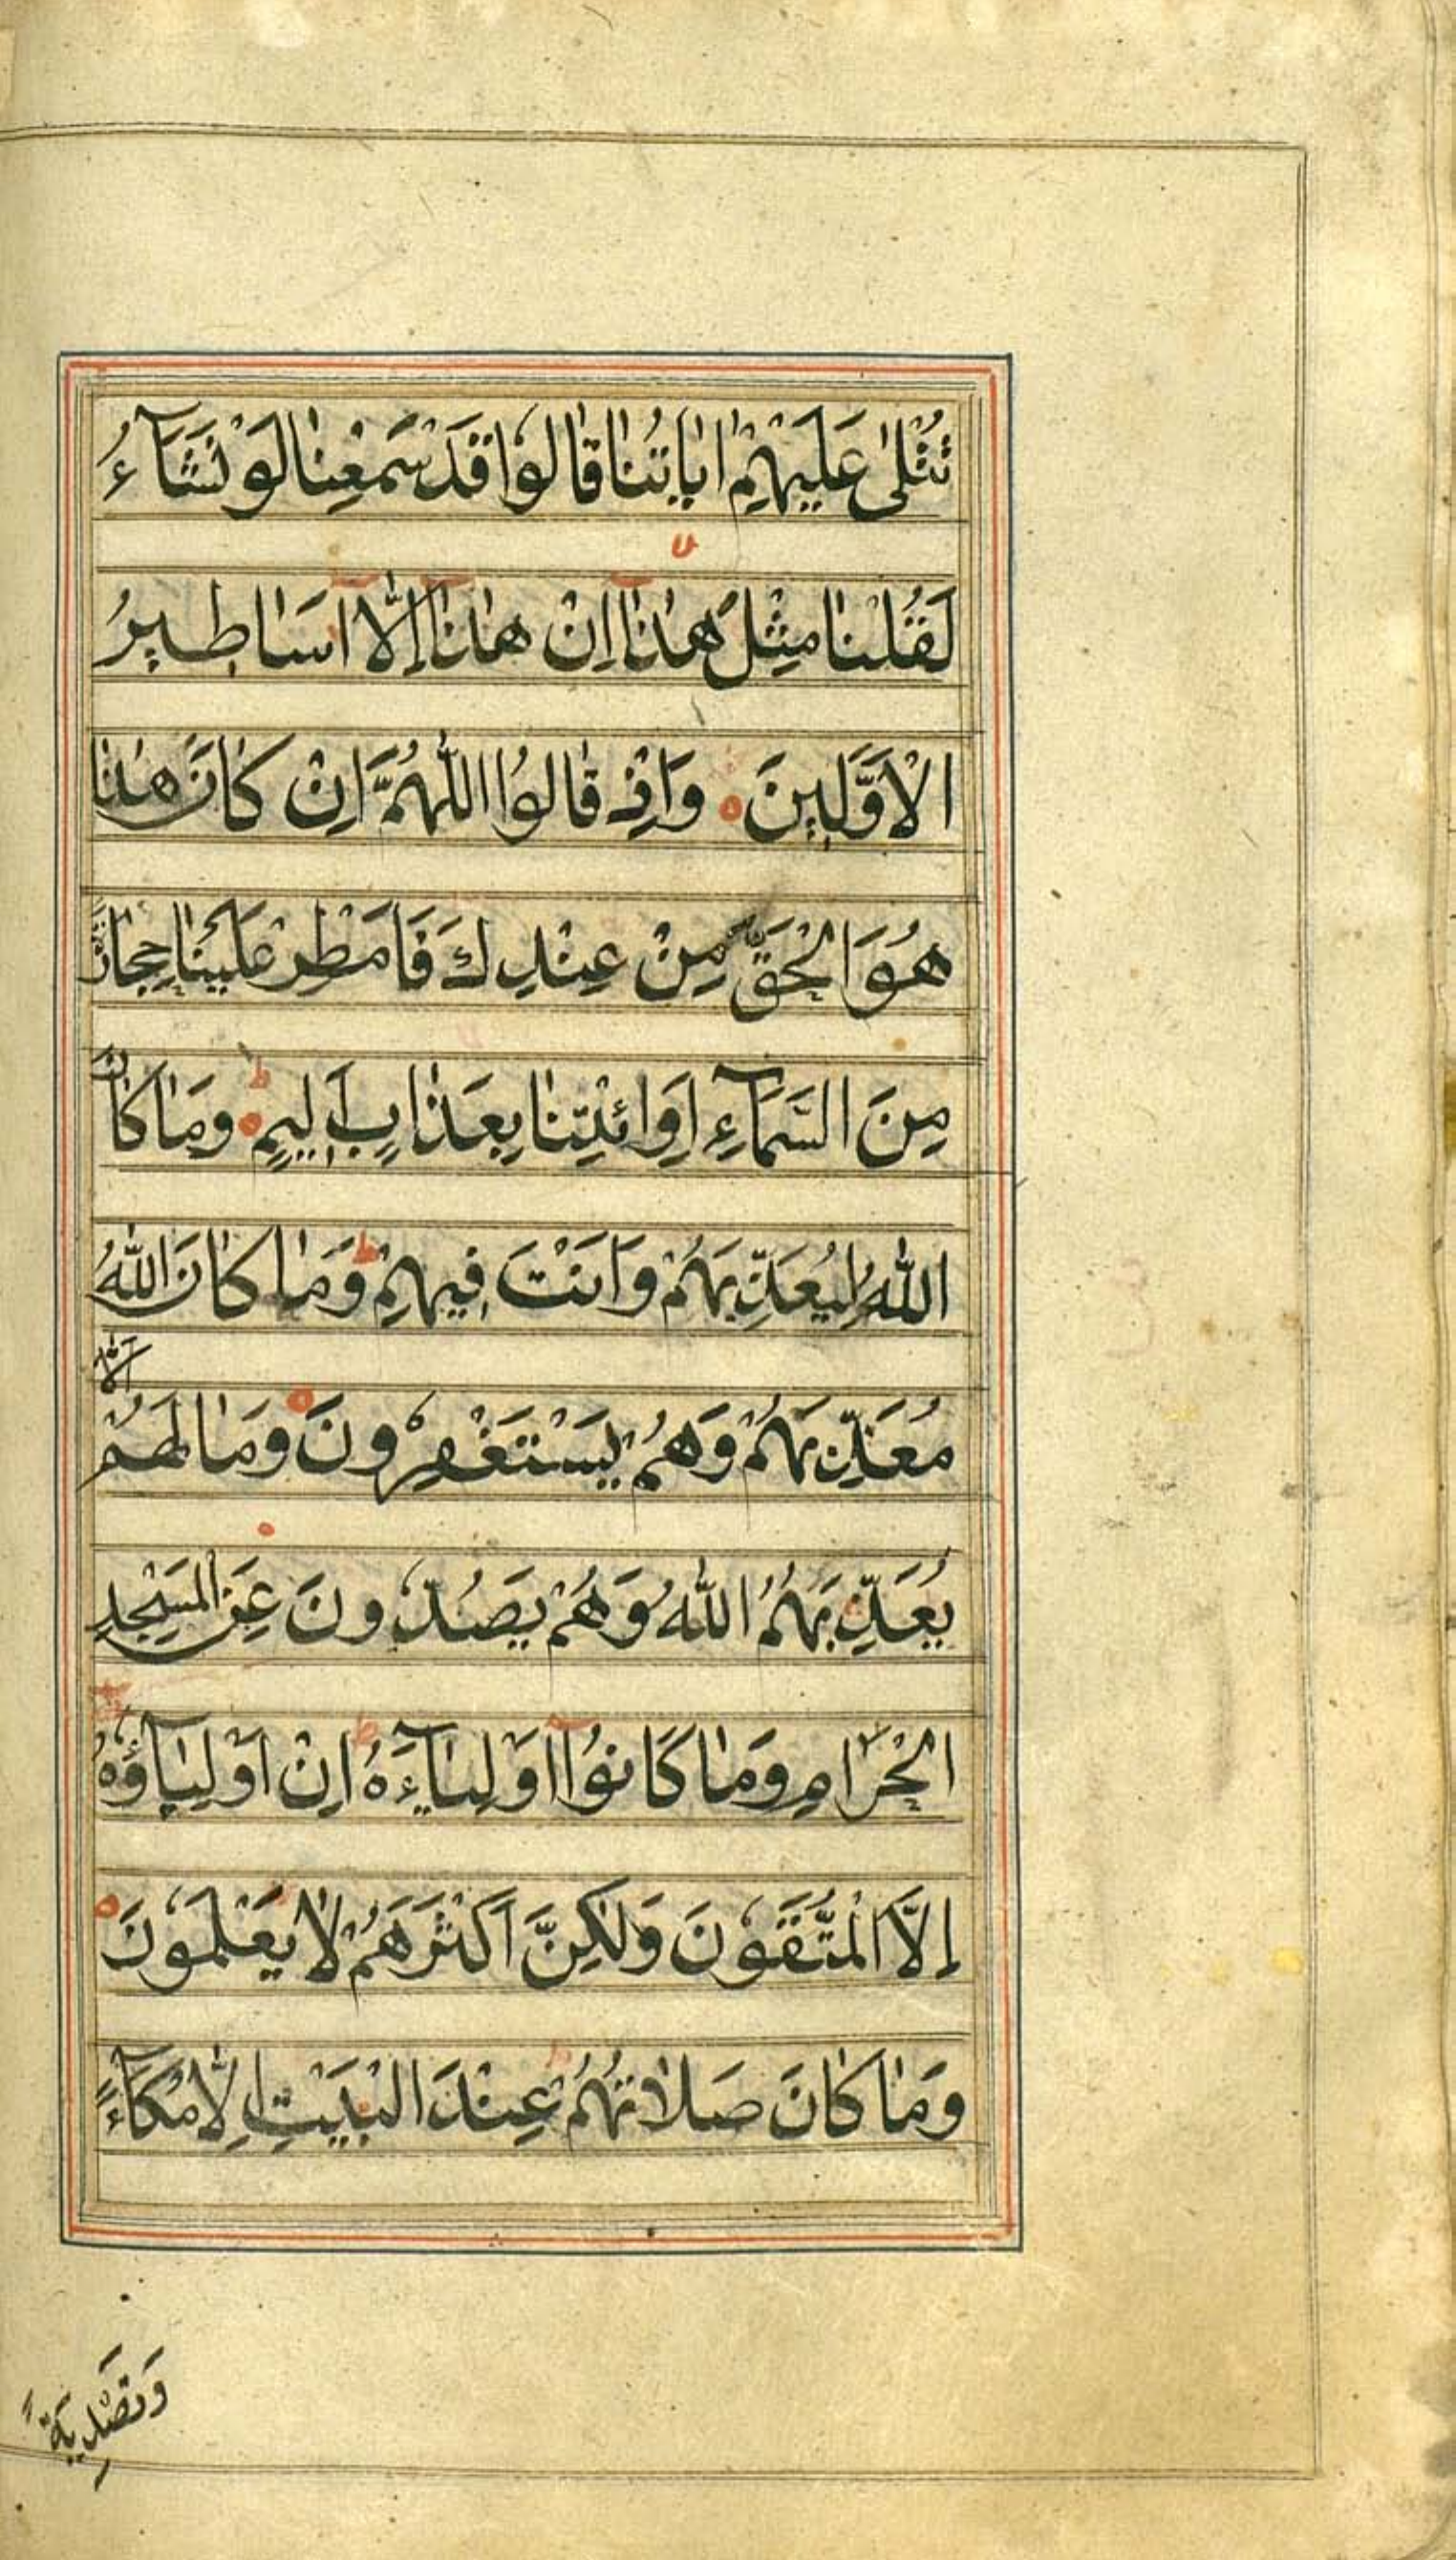 تُتْلٰی عَلَیْهِمْ اٰیَاتُنَا قَالُوْا قَدْ سَمِعْنَا لَوْ نَشَآءُ
لَقُلْنَا مِثْلَ هٰذَآ اِنْ هٰذَآ اِلَّآ اَسَاطِیْرُ
الْاَوَّلِیْنَ وَاِذْ قَالُوا اللّٰهُمَّ اِنْ كَانَ هٰذَا
هُوَ الْحَقَّ مِنْ عِنْدِكَ فَاَمْطِرْ عَلَیْنَا حِجَارَةً
مِنَ السَّمَآءِ اَوِ ائْتِنَا بِعَذَابٍ اَلِیْمٍ ط وَمَا كَانَ
اللّٰهُ لِیُعَذِّبَهُمْ وَاَنْتَ فِیْهِمْ ط وَمَا كَانَ اللّٰهُ
مُعَذِّبَهُمْ وَهُمْ یَسْتَغْفِرُوْنَ وَمَا لَهُمْ اَلَّا
یُعَذِّبَهُمُ اللّٰهُ وَهُمْ یَصُدُّوْنَ عَنِ الْمَسْجِدِ
الْحَرَامِ وَمَا كَانُوْٓا اَوْلِیَآءَهُ ط اِنْ اَوْلِیَآؤُهُ
اِلَّا الْمُتَّقُوْنَ وَلٰكِنَّ اَكْثَرَهُمْ لَا یَعْلَمُوْنَ
وَمَا كَانَ صَلَاتُهُمْ عِنْدَ الْبَیْتِ اِلَّا مُكَآءً
وَتَصْدِیَةً